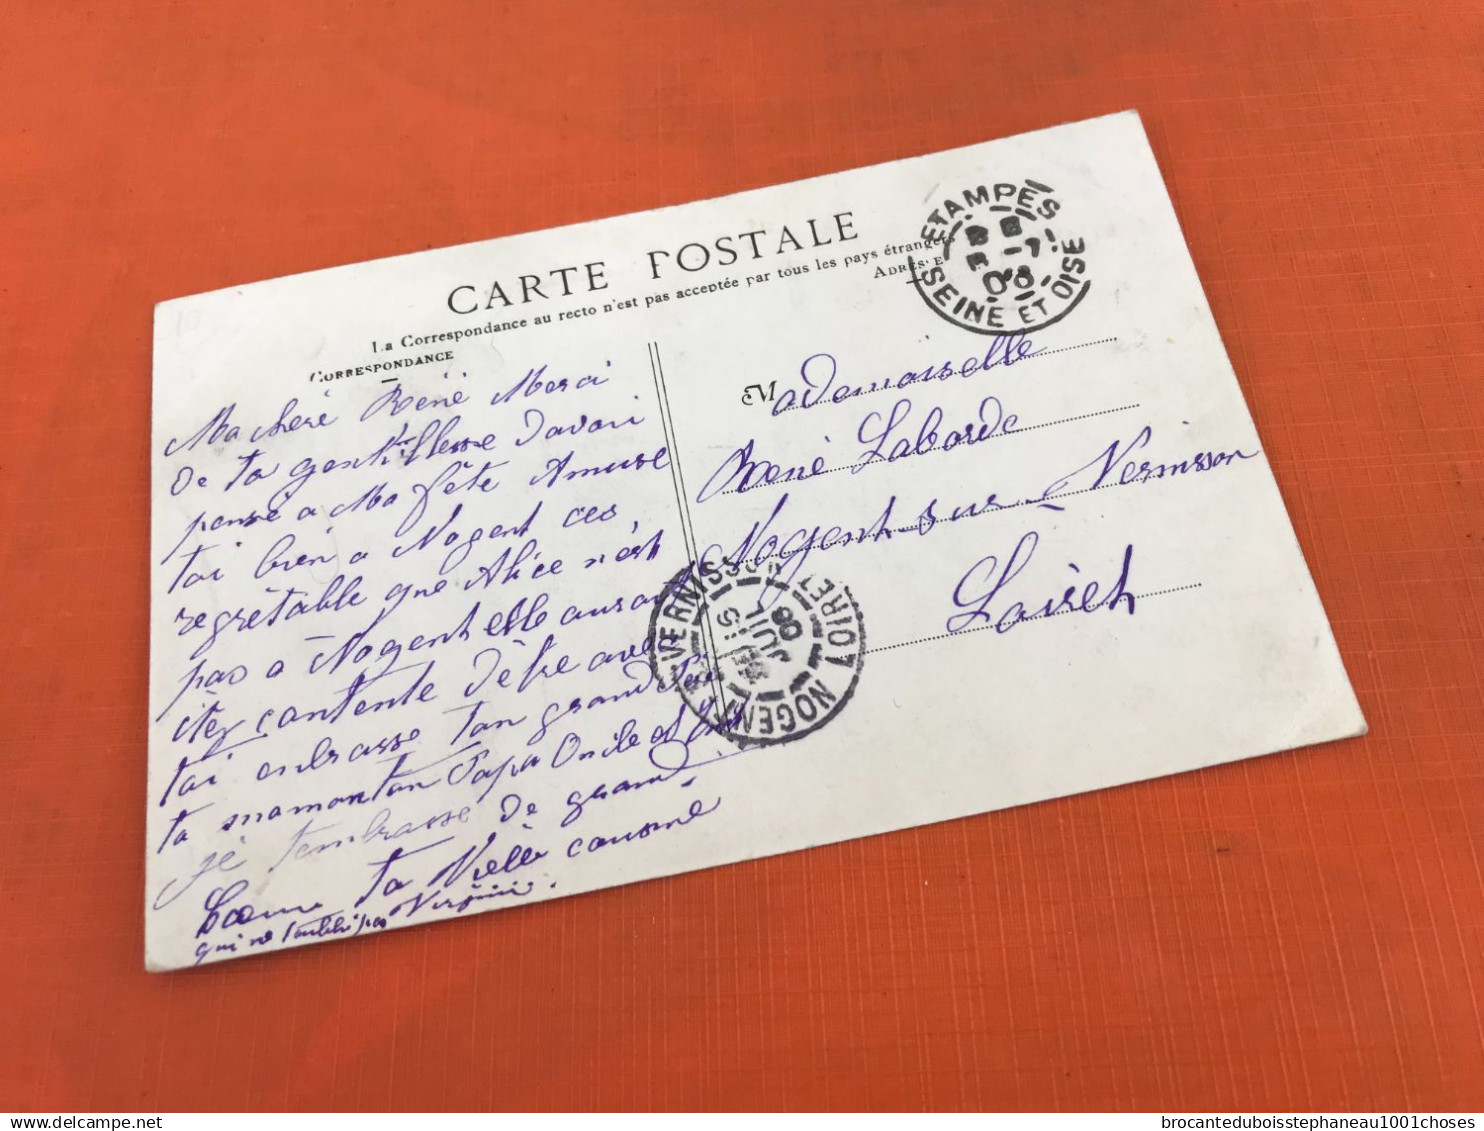 CARTE POSTALE
La Correspondance au recto n'est pas acceptée par tous les pays étrangers
CORRESPONDANCE
ADRESSE
ETAMPES
5 -7
08
SEINE ET OISE
Ma chéré Réné Merci
de ta gentillesse davoir
pensé a Ma fête Amuse
tai bien a Nogent ces
regrétable que Alice n'est
pas a Nogent elle aurait
étez contente dètre avec
toi enbrasse ton grand Père
ta maman ton Papa et
jé tembrasse de grand
Coeur ta Viellè cousine
qui ne toublie pas Virginie.
Mademoiselle
Réné Laborde
Nogent-sur-Vernisson
Loiret
NOGENT S VERNISSON
5
JUIL
08
LOIRET
brocanteduboisstephaneau1001choses